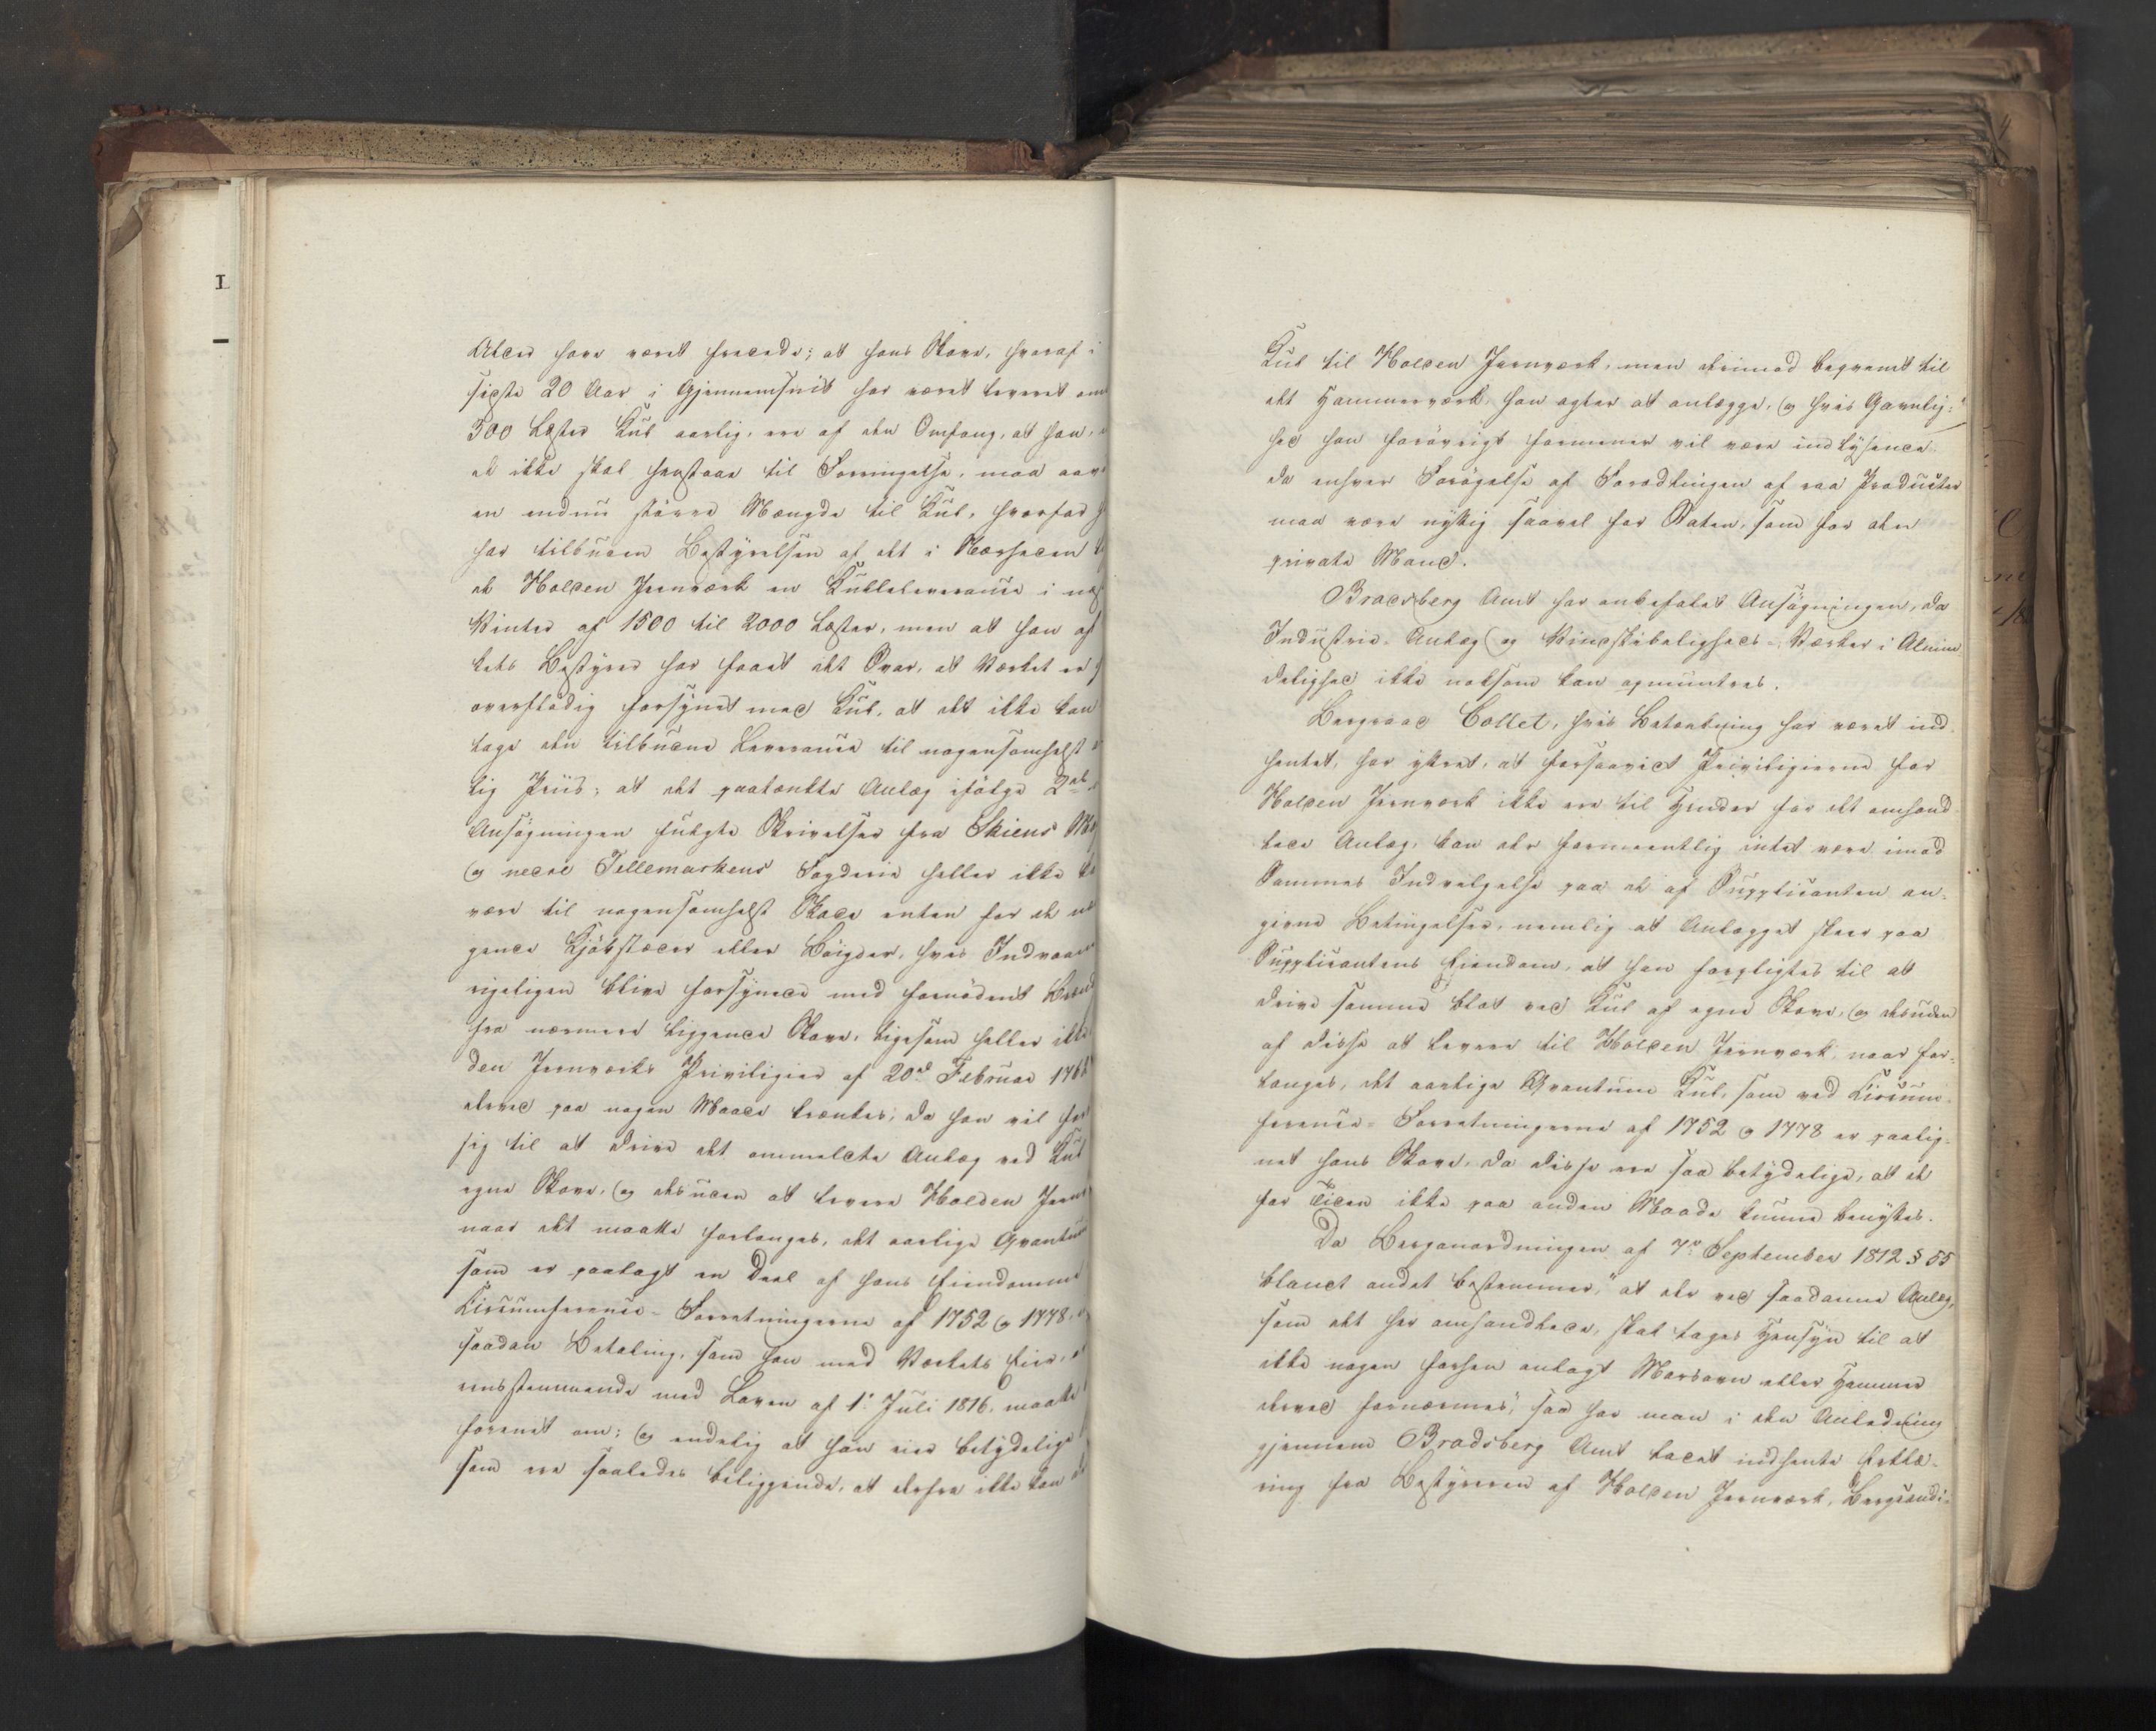 Alder have været fredede; at hans Skove, hvoraf i
sidste 20 Aar i Gjennemsnit har været leveret om
300 Læster Kul aarlig, ere af den Omfang, at han,
de ikke skal henstaae til Forringelse, maa
en endnu större Mængde til Kul, hvorfor
har tilbuden Bestyrelsen af det i Nærheden
de Holden Jernværk en Kulleleverance i
Vinter af 1500 til 2000 Læster, men at han af
kets Bestyrer har faaet det Svar, at Værket er
overflödig forsynet med Kul, at det ikke kan
tage den tilbudne Leverance til nogensomhelst
lig Priis; at det paatænkte Anlæg ifölge 2de
Ansögningen fulgte Skrivelser fra Skiens
og nedre Tellemarkens Fogderie heller ikke
være til nogensomhelst Skade enten for de
gende Kjöbstæder eller Böigder, hvis Indvaa
rigeligen blive forsynede med fornödent
fra nærmere liggende Skove, ligesom heller ikke
den Jernværks Priviligier af 20de Februar 176
derved paa nogen Maade krænkes, da han vil
sig til at drive det ommeldte Anlæg ved Kul
egne Skove, og desuden at levere Holden
naar det maatte forlanges, det aarlige Qvantum
som er paalagt en Deel af hans Eiendomme
Circumference-Forretningerne af 1752 og 1778,
saadan Betaling, som han med Værkets Eier,
eensstemmende med Loven af 1e Juli 1816, maatte
forenet om; og endelig at han eier betydelige
som ere saaledes beliggende, at derfra ikke kan
Kul til Holden Jernværk, men derimod beqvemt til
det Hammerværk, han agter at anlægge, og hvis Gavnlig-
hed han forövrigt formener vil være indlysende,
da enhver Forögelse af Forædlingen af raa Producter
maa være nyttig saavel for Staten, som for den
private Mand.
Bradsberg Amt har anbefalet Ansögningen, da
Industrie-Anlæg og Vindskibeligheds-Værker i Almin-
delighed ikke noksom kan opmuntres.
Bergraad Collet, hvis Betænkning har været ind-
hentet, har yttret, at forsaavidt Priviligierne for
Holden Jernværk ikke ere til Hinder for det omhand-
lede Anlæg, kan der formeentlig intet være imod
Sammes Indvelgelse paa de af Supplicanten an-
givne Betingelser, nemlig at Anlægget skeer paa
Supplicantens Eiendom, at han forpligtes til at
drive samme blot ved Kul af egne Skove, og desuden
af disse at levere til Holden Jernværk, naar for-
langes, det aarlige Qvantum Kul, som ved Circum-
ference-Forretningerne af 1752 og 1778 er paalig-
net hans Skove, da disse ere saa betydelige, at de
for Tiden ikke paa anden Maade kunne benyttes.
Da Berganordningen af 7de September 1812 § 55
blandt andet bestemmer, "at der ved saadanne Anlæg,
som det her omhandlede, skal tages Hensyn til at
ikke nogen forhen anlagt Masovn eller Hammer
derved fornærmes", saa har man i den Anledning
gjennem Bradsberg Amt ladet indhente Erklæ-
ring fra Bestyreren af Holden Jernværk, Bergcandi-